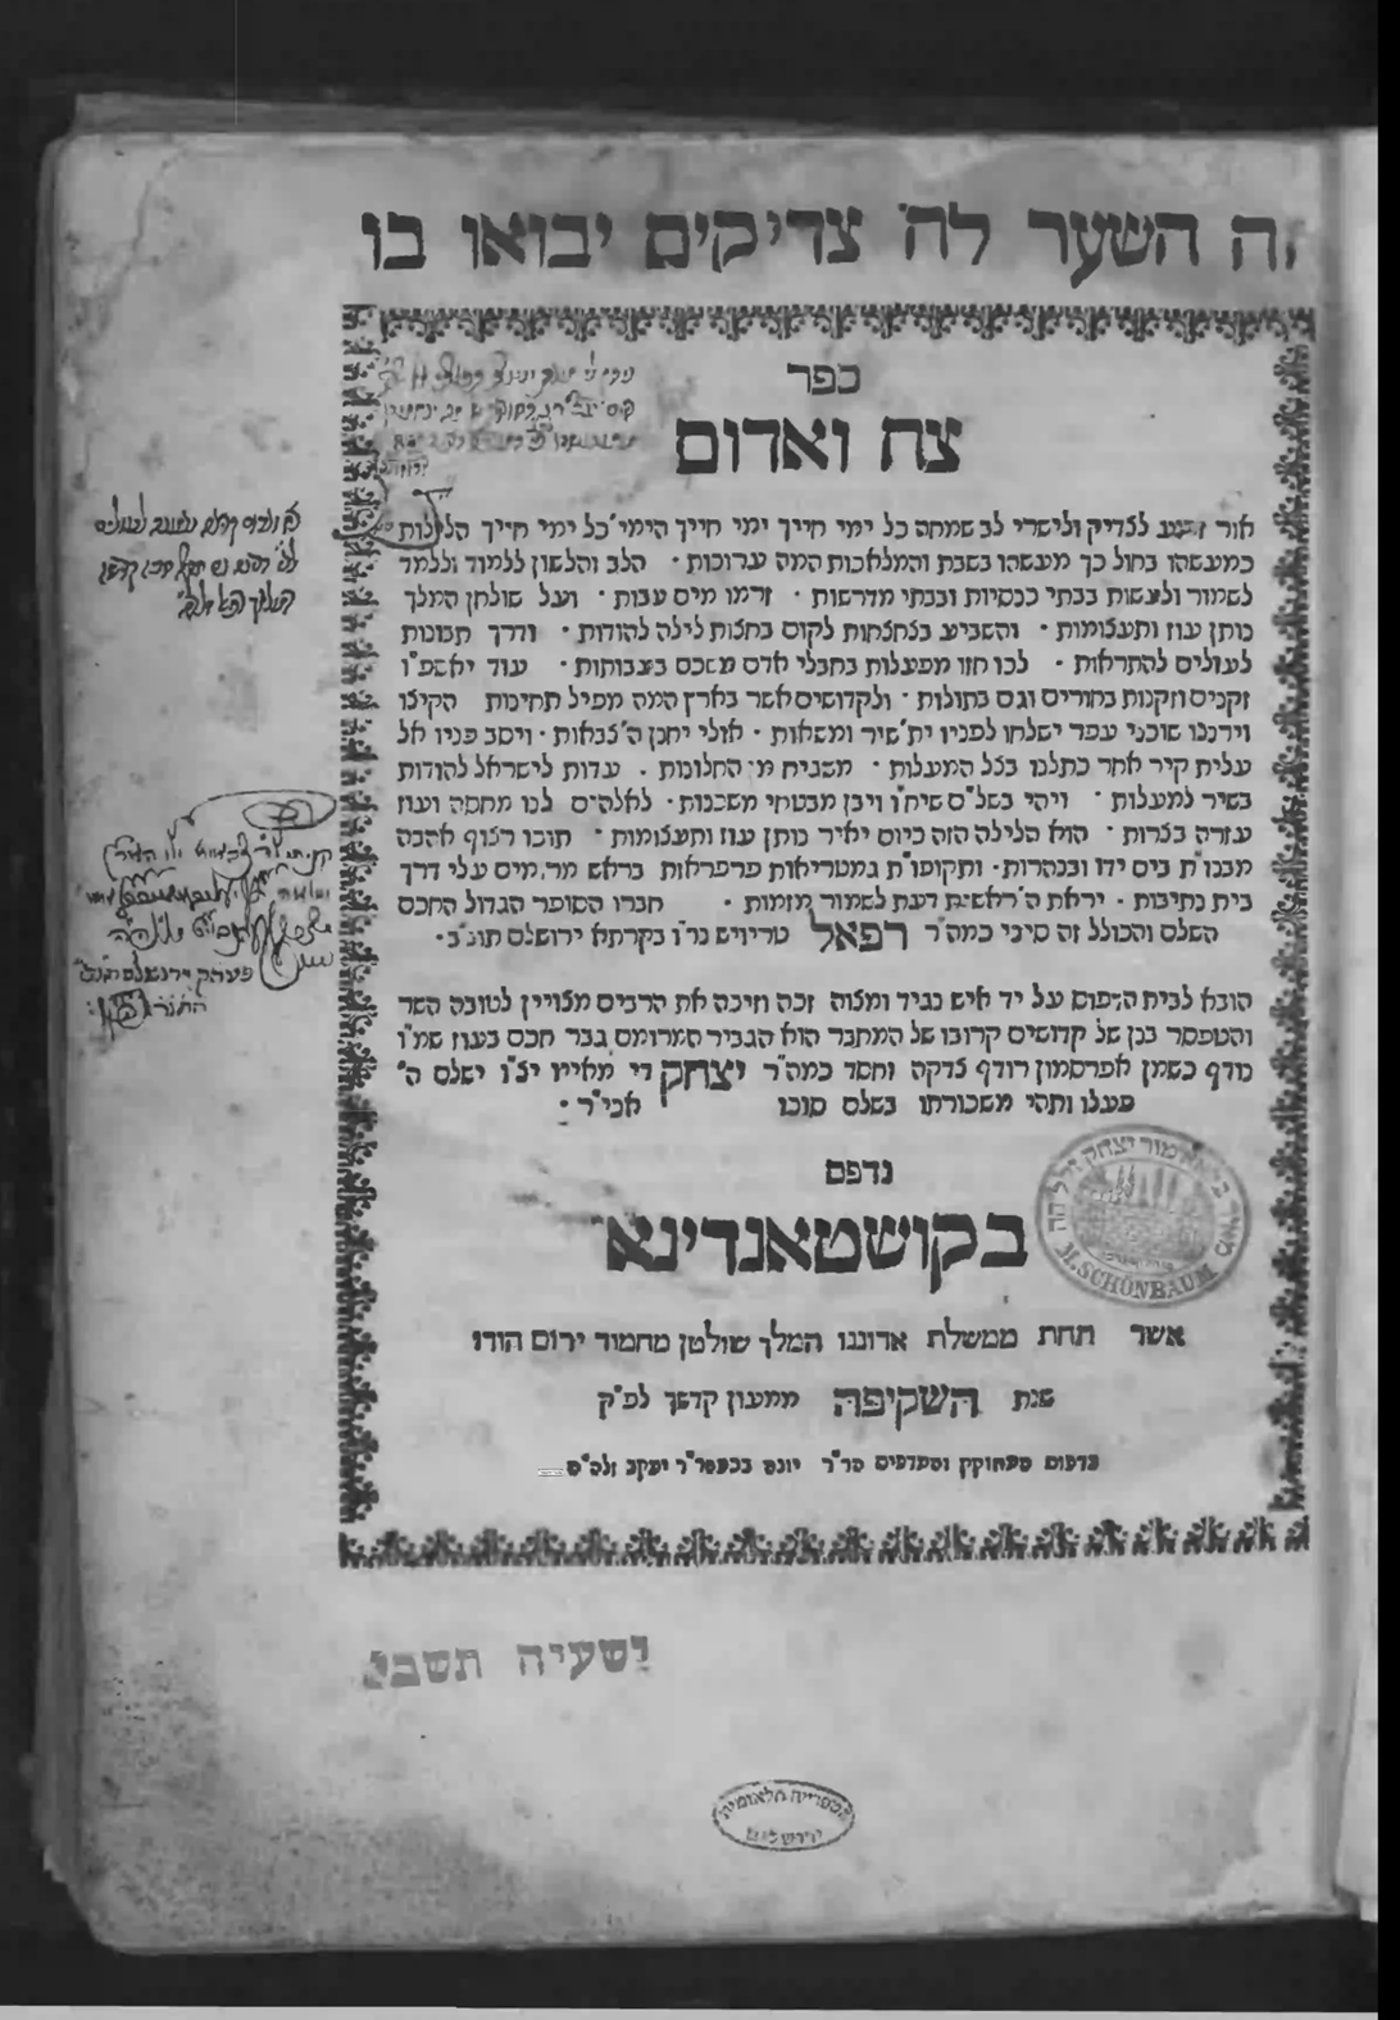 זה השער לה' צדיקים יבואו בו
ספר
צח ואדום
אור זרוע לצדיק ולישרי לב שמחה כל ימי חייך ימי חייך הימי' כל ימי חייך הלילות
כמעשהו בחול כך מעשהו בשבת והמלאכות המה ערוכות · הלב והלשון ללמוד וללמד
לשמור ולעשות בבתי כנסיות ובבתי מדרשות · זרמו מים עבות · ועל שולחן המלך
נותן עוז ותעצומות · והשביע בצחצחות לקום בחצות לילה להודות · ודרך תבונות
לעולים להתראות · לכו חזו מפעלות בחבלי אדם משכם בעבותות · עוד יאשפ"ו
זקנים וזקנות בחורים וגם בתולות · ולקדושים אשר בארץ המה מפיל תחינות הקיצו
וירננו שוכני עפר ישלחו לפניו ית' שיר ומשאות · אולי יחנן ה' צבאות · ויסב פניו אל
עלית קיר אחר כתלנו בצל המעלות · משגיח מן החלונות · עדות לישראל להודות
בשיר למעלות · ויהי בשל"ם שיח"ו ויבן מבטחי משכנות · לאלהים לנו מחסה ועוז
עזרה בצרות · הוא הלילה הזה כיום יאיר נותן עוז ותעצומות · תוכו רצוף אהבה
מבנו"ת בים ידו ובנהרות · ותקופו"ת גמטריאות פרפראות בראש מרומים עלי דרך
בית נתיבות · יראת ה' ראשית דעת לשמור מזמות · חברו הסופר הגדול החכם
השלם והכולל זה סיני כמה"ר רפאל טריויש נר"ו בקרתא ירושלם תוב"ב ·
הובא לבית הדפוס על יד איש נגיד ומצוה זכה וזיכה את הרבים מצויין לטובה השר
והטפסר בנן של קדושים קרובו של המחבר הוא הגביר המרומם גבר חכם בעוז שמ"ו
נודף כשמן אפרסמון רודף צדקה וחסד כמה"ר יצחק די מאייו יצ"ו ישלם ה'
פעלו ותהי משכורתו בשלם סוכו אכי"ר :
נדפס
בקושטאנדינא
אשר תחת ממשלת אדוננו המלך שולטן מחמוד ירום הודו
שנת השקיפה ממעון קדשך לפ"ק
בדפוס המחוקק והמדפיס הר"ר יונה בכמהר"ר יעקב זלה"ה
M. SCHÖNBAUM
ישעיה תשבי
הספריה הלאומית
ירושלים